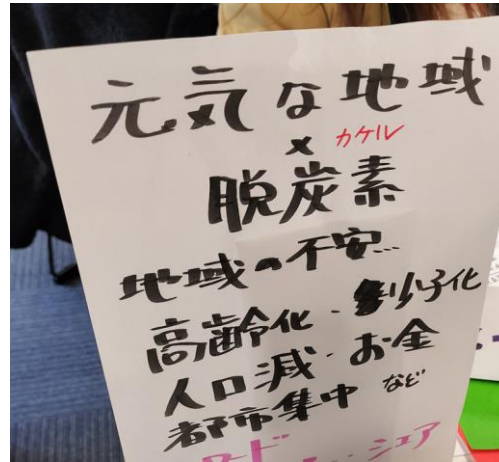 元気な地域
× カケル
脱炭素
地域の不安…
高齢化・少子化
人口減・お金
都市集中 など
シェア